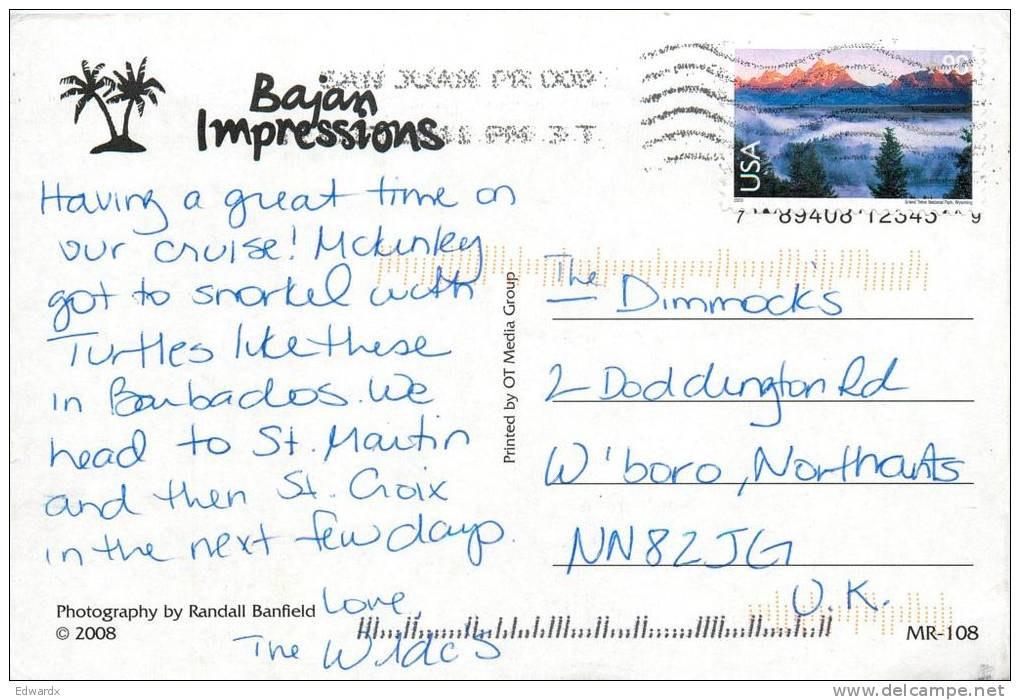 Bajan
Impressions
SAN JUAN PR 009
11 PM 3 T
USA
Grand Teton National Park, Wyoming
7 89408 12345 9
Having a great time on
our cruise! McKinley
got to snorkel with
Turtles like these
in Barbados. We
head to St. Martin
and then St. Croix
in the next few days.
Love,
The
Photography by Randall Banfield
© 2008
Printed by OT Media Group
The Dimmock's
2 Doddington Rd
W'boro, Northants
NN82JG
U.K.
MR-108
Edwardx
delcampe.net